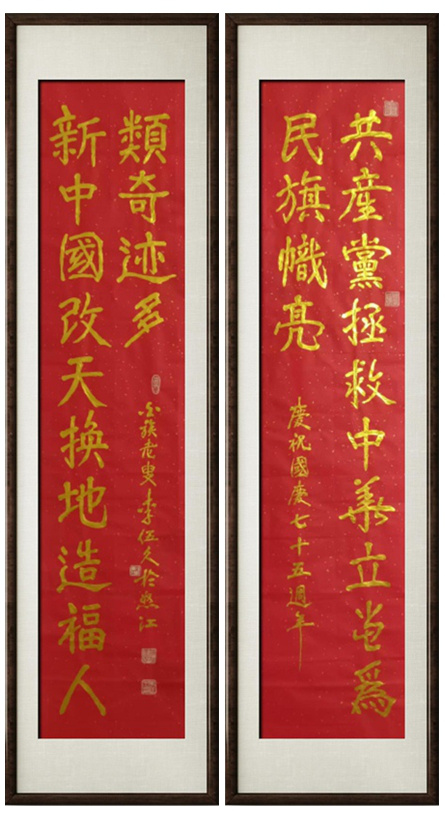 共產黨拯救中華立党爲
民旗幟亮
慶祝國慶七十五週年
新中國改天換地造福人
類奇迹多
白族老叟李伍久於怒江